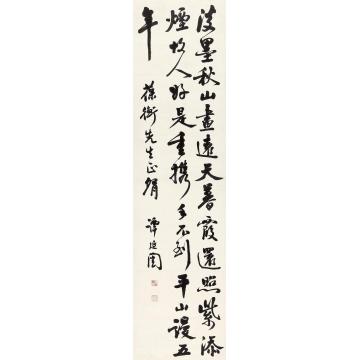 淡墨秋山畫遠天暮霞還照紫添
煙故人好是重攜手不到平山謾五
年
葆衡先生正腕
譚延闓